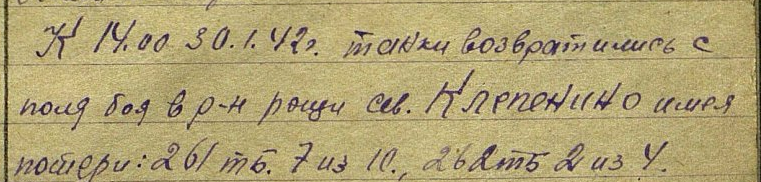 К 14.00 30.1.42г. танки возвратились с
поля боя в р-н рощи сев. Клепенино имея
потери: 261 тб. 7 из 10., 262 тб 2 из 4.